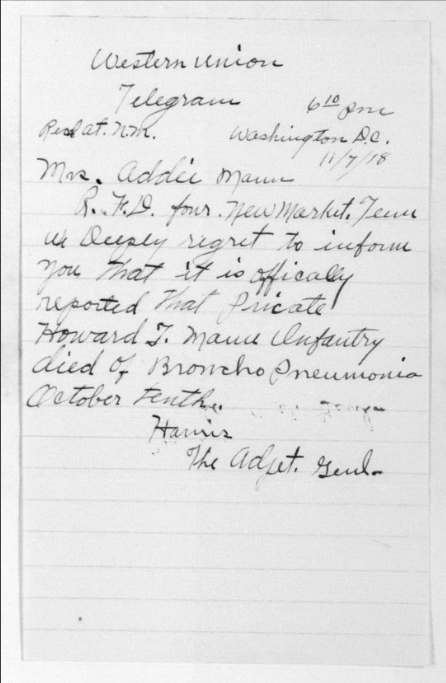 Western Union
Telegram
6 10 pm
Recd at. N.M. Washington D.C.
11/7/18
Mrs. Addie Mann
R.F.D. four. New Market. Tenn
We Deeply regret to inform
you that it is offically
reported that Private
Howard T. Mann Infantry
died of Broncho Pneumonia
October tenth.
Harris
The Adjt. Genl.